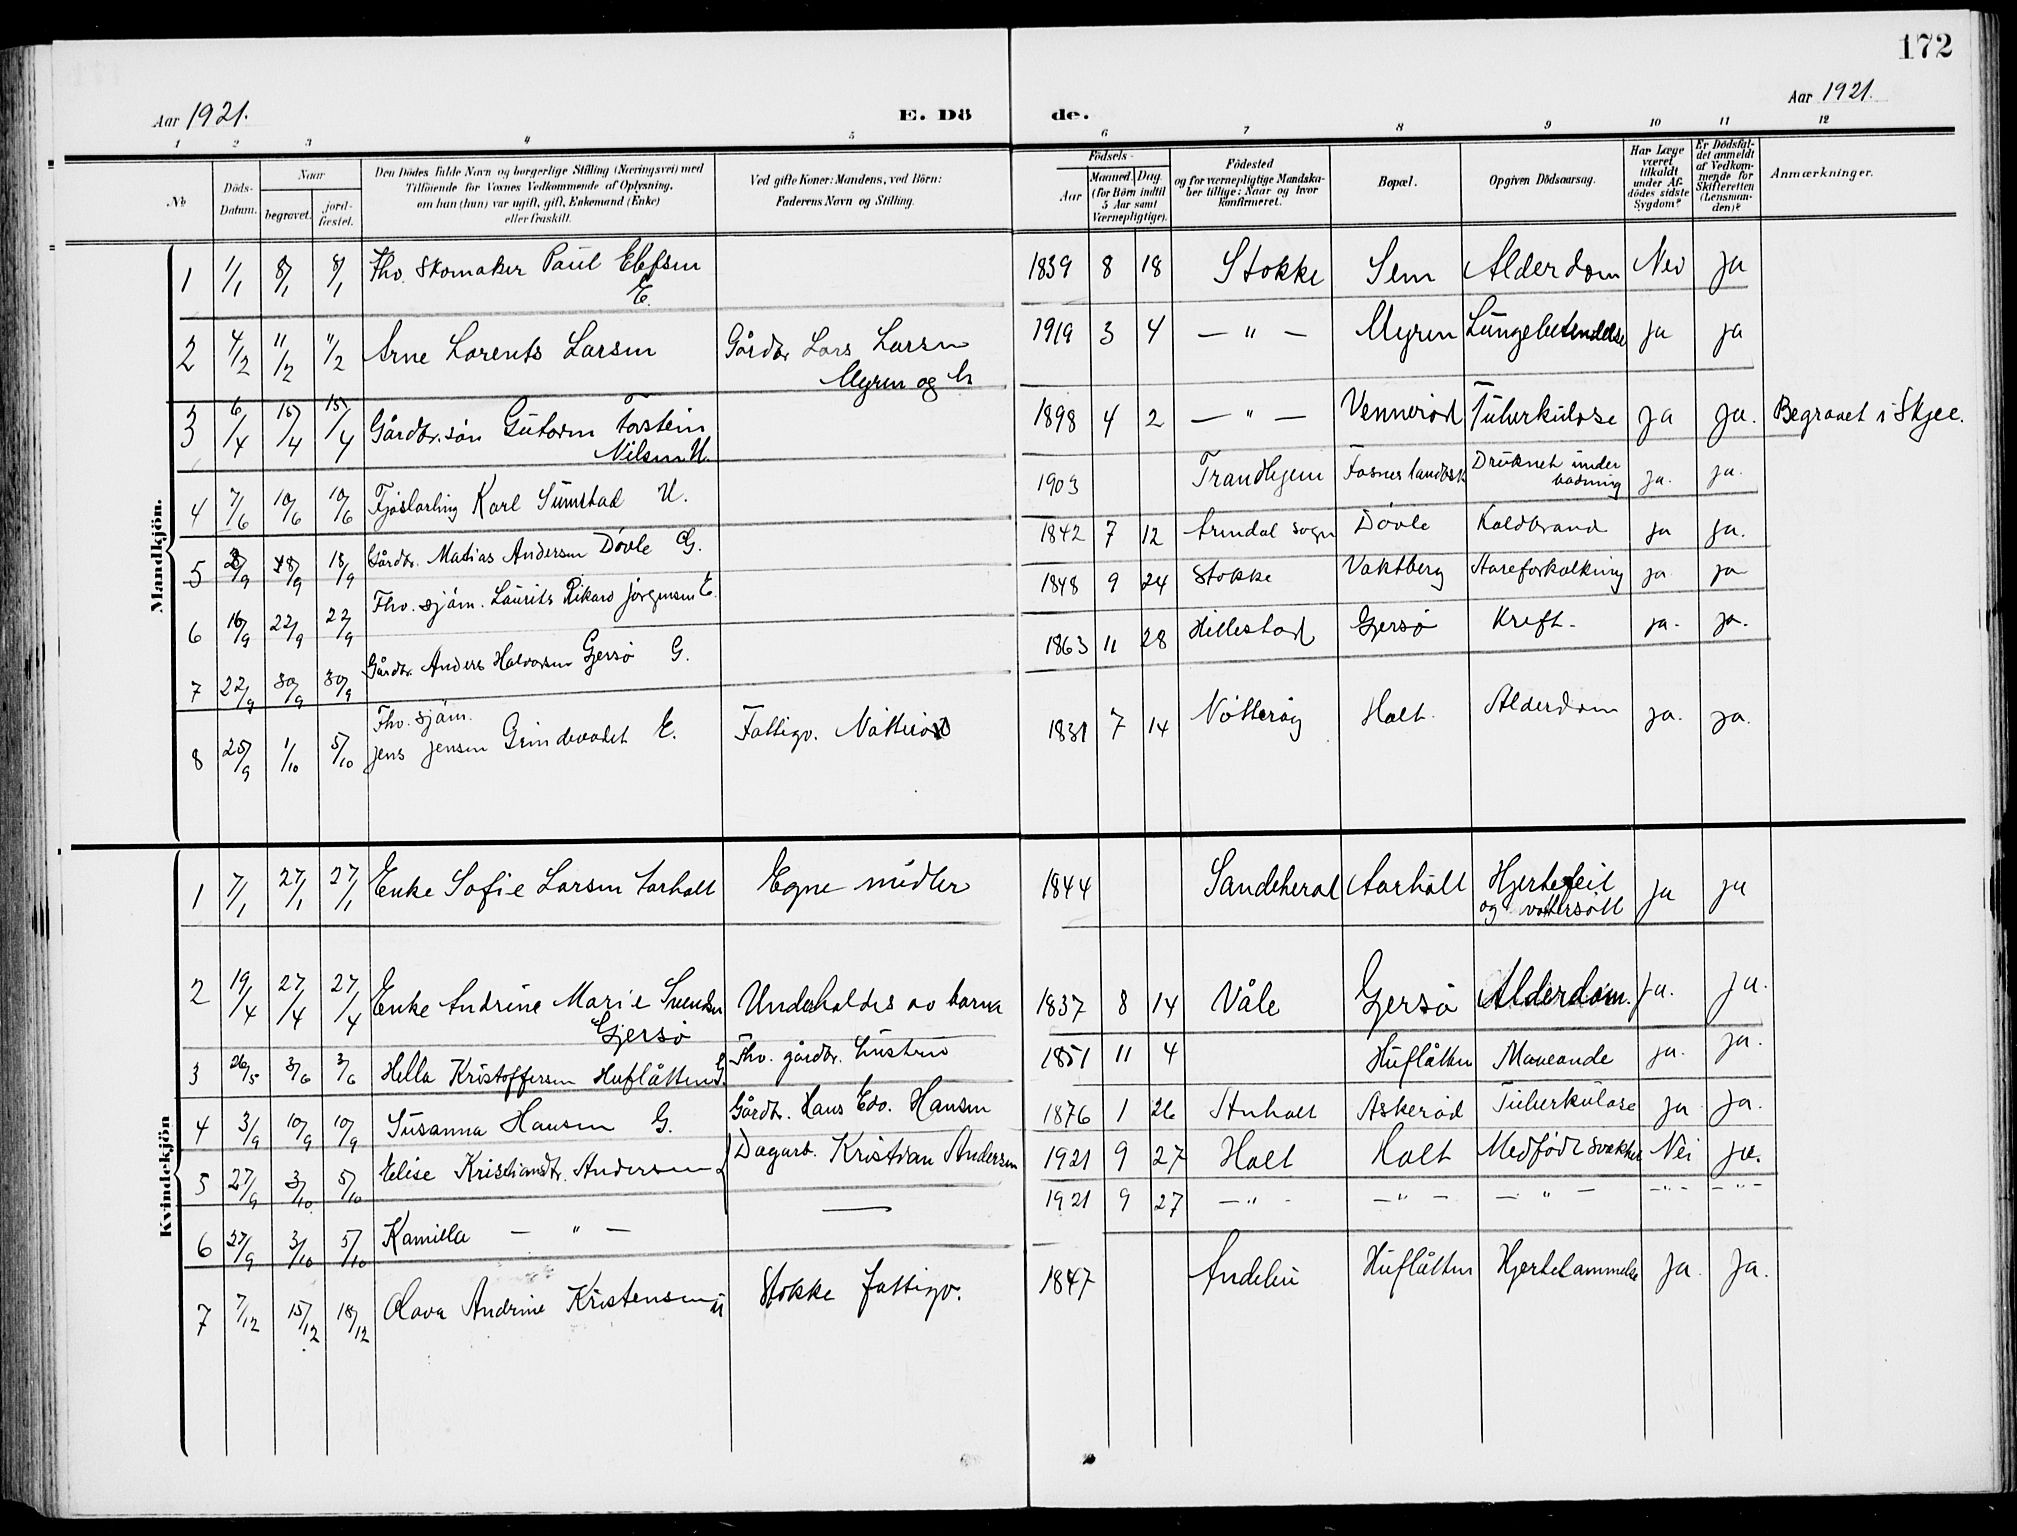 172
Aar 1921. E. Dö de. Aar 1921.
1 2 3 4 5 6 7 8 9 10 11 12
No
Döds-Datum.
Naar
begravet.
jord-fæstet.
Den Dödes fulde Navn og borgerlige Stilling (Næringsvei) med
Tilföiende for Voxnes Vedkommende af Oplysning,
om han (hun) var ugift, gift, Enkemand (Enke)
eller fraskilt.
Ved gifte Koner: Mandens, ved Börn:
Faderens Navn og Stilling.
Födsels-
Aar
Maaned. Dag.
(for Börn indtil
5 Aar samt
Værnepligtige).
Födested
og for værnepligtige Mandska-
ber tillige: Naar og hvor
konfirmeret.
Bopæl.
Opgiven Dödsaarsag.
Har Læge
været
tilkaldt
under Af-
dödes sidste
Sygdom?
Er Dödsfal-
det anmeldt
af Vedkom-
mende for
Skifteretten
(Lensman-
den)?
Anmærkninger.
Mandkjön.
1 1/1 8/1 8/1 Fhv. Skomaker Paul Elefsen E. 1839 8 18 Stokke Sem Alderdom Nei Ja
2 4/2 11/2 11/2 Arne Lorents Larsen Gårdbr. Lars Larsen 1919 3 4 — " — Myren Lungebetendelse ja ja
Myren og h
3 6/4 15/4 15/4 Gårdbr.søn Gutorm Torstein 1898 4 2 — " — Vennerød Tuberkulose ja ja. Begravet i Skjee.
Nilsen U.
4 7/6 10/6 10/6 Fjøslærling Karl Sumstad U. 1903 Trandhjem Fosnes landbsk Druknet under ja. ja.
badning
5 8/9 18/9 18/9 Gårdbr. Matias Andersen Døvle G. 1842 7 12 Arendal sogn Døvle Koldbrand ja ja.
6 16/9 22/9 22/9 Fhv. sjøm. Laurits Rikard Jørgensen E. 1848 9 24 Stokke Vaktberg Aareforkalkning ja ja
7 22/9 30/9 30/9 Gårdbr. Anders Halvorsen Gjersø G. 1863 11 28 Hillestad Gjersø Kreft. ja. ja.
8 25/9 1/10 5/10 Fhv. sjøm.
Jens Jensen Grindevadet E. Fattigv. Nøtterø 1831 7 14 Nøtterøy Holt. Alderdom ja. ja.
Kvindekjön
1 7/1 27/1 27/1 Enke Sofie Larsen Aarholt Egne midler 1844 Sandeherad Aarholt Hjertefeil ja ja
og vattersott
2 19/4 27/4 27/4 Enke Andrine Marie Svendsen Underholdes av barna 1837 8 14 Våle Gjersø Alderdom. ja. ja.
Gjersø
3 26/5 3/6 3/6 Hella Kristoffersen Huflåtten G. Fhv. gårdbr. hustru 1851 11 4 Huflåtten Maveonde ja. ja.
4 3/9 10/9 10/9 Susanna Hansen G. Gårdbr. Hans Edv. Hansen 1876 1 26 Anholt Askerød Tuberkulose ja ja.
5 27/9 3/10 5/10 Elise Kristiansdtr. Andersen Dagarb. Kristian Andersen 1921 9 27 Holt Holt Medfødt svakhet Nei ja.
6 27/9 3/10 5/10 Kamilla — " — — 1921 9 27 — " — — " — — " — — " — — " —
7 7/12 15/12 18/12 Olava Andrine Kristensen U Stokke fattigv. 1847 Andebu Huflåtten Hjertelammelse ja ja.